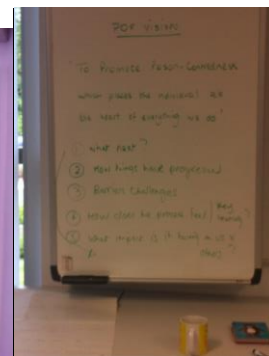 FOR VISION
"To Promote Person-Centredness
which places the individual at
the heart of everything we do"
① What next?
② How things have progressed
③ Barriers Challenges
④ How does the person feel
⑤ What impact is it having on us &
others